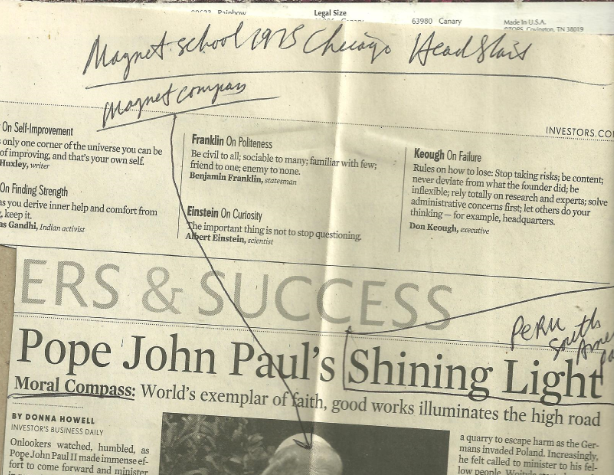 Rainbow
Legal Size
63980 Canary
Made in U.S.A.
Covington, TN 38019
Magnet school 1975 Chicago Head Start
Magnet compass
INVESTORS.CO
On Self-Improvement
only one corner of the universe you can be
of improving, and that's your own self.
Huxley, writer
On Finding Strength
as you derive inner help and comfort from
, keep it.
as Gandhi, Indian activist
Franklin On Politeness
Be civil to all; sociable to many; familiar with few;
friend to one; enemy to none.
Benjamin Franklin, statesman
Einstein On Curiosity
The important thing is not to stop questioning.
Albert Einstein, scientist
Keough On Failure
Rules on how to lose: Stop taking risks; be content;
never deviate from what the founder did; be
inflexible; rely totally on research and experts; solve
administrative concerns first; let others do your
thinking — for example, headquarters.
Don Keough, executive
ERS & SUCCESS
PERU
South
Amer
Pope John Paul's Shining Light
Moral Compass: World's exemplar of faith, good works illuminates the high road
BY DONNA HOWELL
INVESTOR'S BUSINESS DAILY
Onlookers watched, humbled, as
Pope John Paul II made immense ef-
fort to come forward and minister
a quarry to escape harm as the Ger-
mans invaded Poland. Increasingly,
he felt called to minister to his fel-
low people.